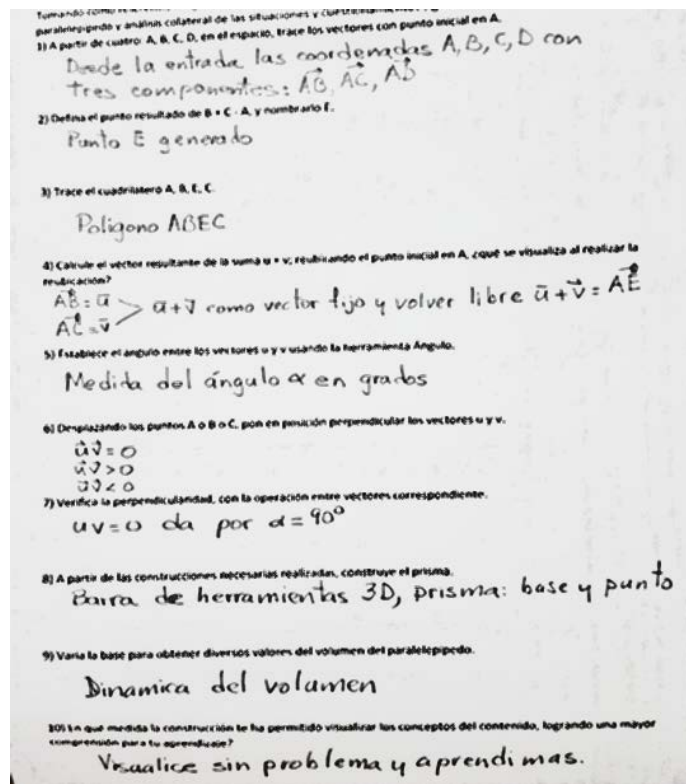 paralelepípedo y análisis collateral de las situaciones y
1) A partir de cuatro: A, B, C, D, en el espacio, trace los vectores con punto inicial en A.
Desde la entrada las coordenadas A, B, C, D con
tres componentes: AB, AC, AD
2) Defina el punto resultado de B + C - A, y nombrarlo E.
Punto E generado
3) Trace el cuadrilátero A, B, E, C.
Poligono ABEC
4) Calcule el vector resultante de la suma u + v; reubicando el punto inicial en A, ¿qué se visualiza al realizar la
reubicación?
AB = u
AC = v > u + v como vector fijo y volver libre u + v = AE
5) Establece el ángulo entre los vectores u y v usando la herramienta Ángulo.
Medida del ángulo α en grados
6) Desplazando los puntos A o B o C, pon en posición perpendicular los vectores u y v.
u v = 0
u v > 0
u v < 0
7) Verifica la perpendicularidad, con la operación entre vectores correspondiente.
u v = 0 da por α = 90°
8) A partir de las construcciones necesarias realizadas, construye el prisma.
Barra de herramientas 3D, prisma: base y punto
9) Varia la base para obtener diversos valores del volumen del paralelepípedo.
Dinamica del volumen
10) En qué medida la construcción te ha permitido visualizar los conceptos del contenido, logrando una mayor
comprensión para tu aprendizaje?
Visualice sin problema y aprendi mas.